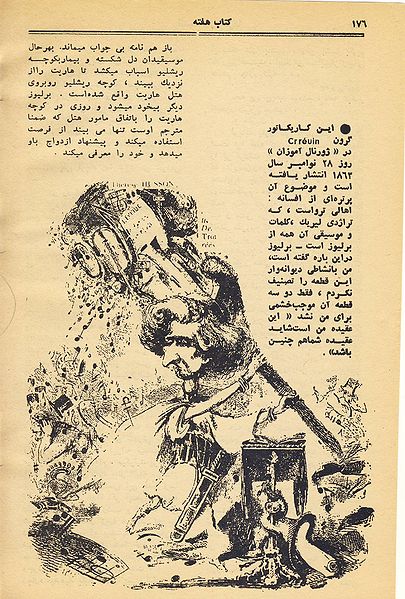 ۱۷۶
کتاب هفته
باز هم نامه بی جواب میماند. بهرحال
موسیقیدان دل شکسته و بیماربکوچه
ریشلیو اسباب میکشد تا هاریت رااز
نزدیک ببیند ، کوچه ریشلیو روبروی
هتل هاریت واقع شده‌است . برلیوز
دیگر بیخود میشود و روزی در کوچه
هاریت را باتفاق مامور هتل که ضمنا
مترجم اوست تنها می بیند از فرصت
استفاده میکند و پیشنهاد ازدواج باو
میدهد و خود را معرفی میکند .
● این کاریکاتور
گرون Crréuin
در « ژورنال آموزان »
روز ۲۸ نوامبر سال
۱۸۶۳ انتشار یافته
است و موضوع آن
پرتره‌ای از افسانه :
اهالی ترواست ، که
تراژدی لیریك ،کلمات
و موسیقی آن همه از
برلیوز است ـ برلیوز
دراین باره گفته است،
من بانشاطی دیوانه‌وار
این قطعه را تصنیف
نکردم ، فقط دو سه
قطعه آن موجب‌خشمی
برای من نشد « این
عقیده من است‌شاید
عقیده شماهم چنین
باشد» .
les
De
Tro